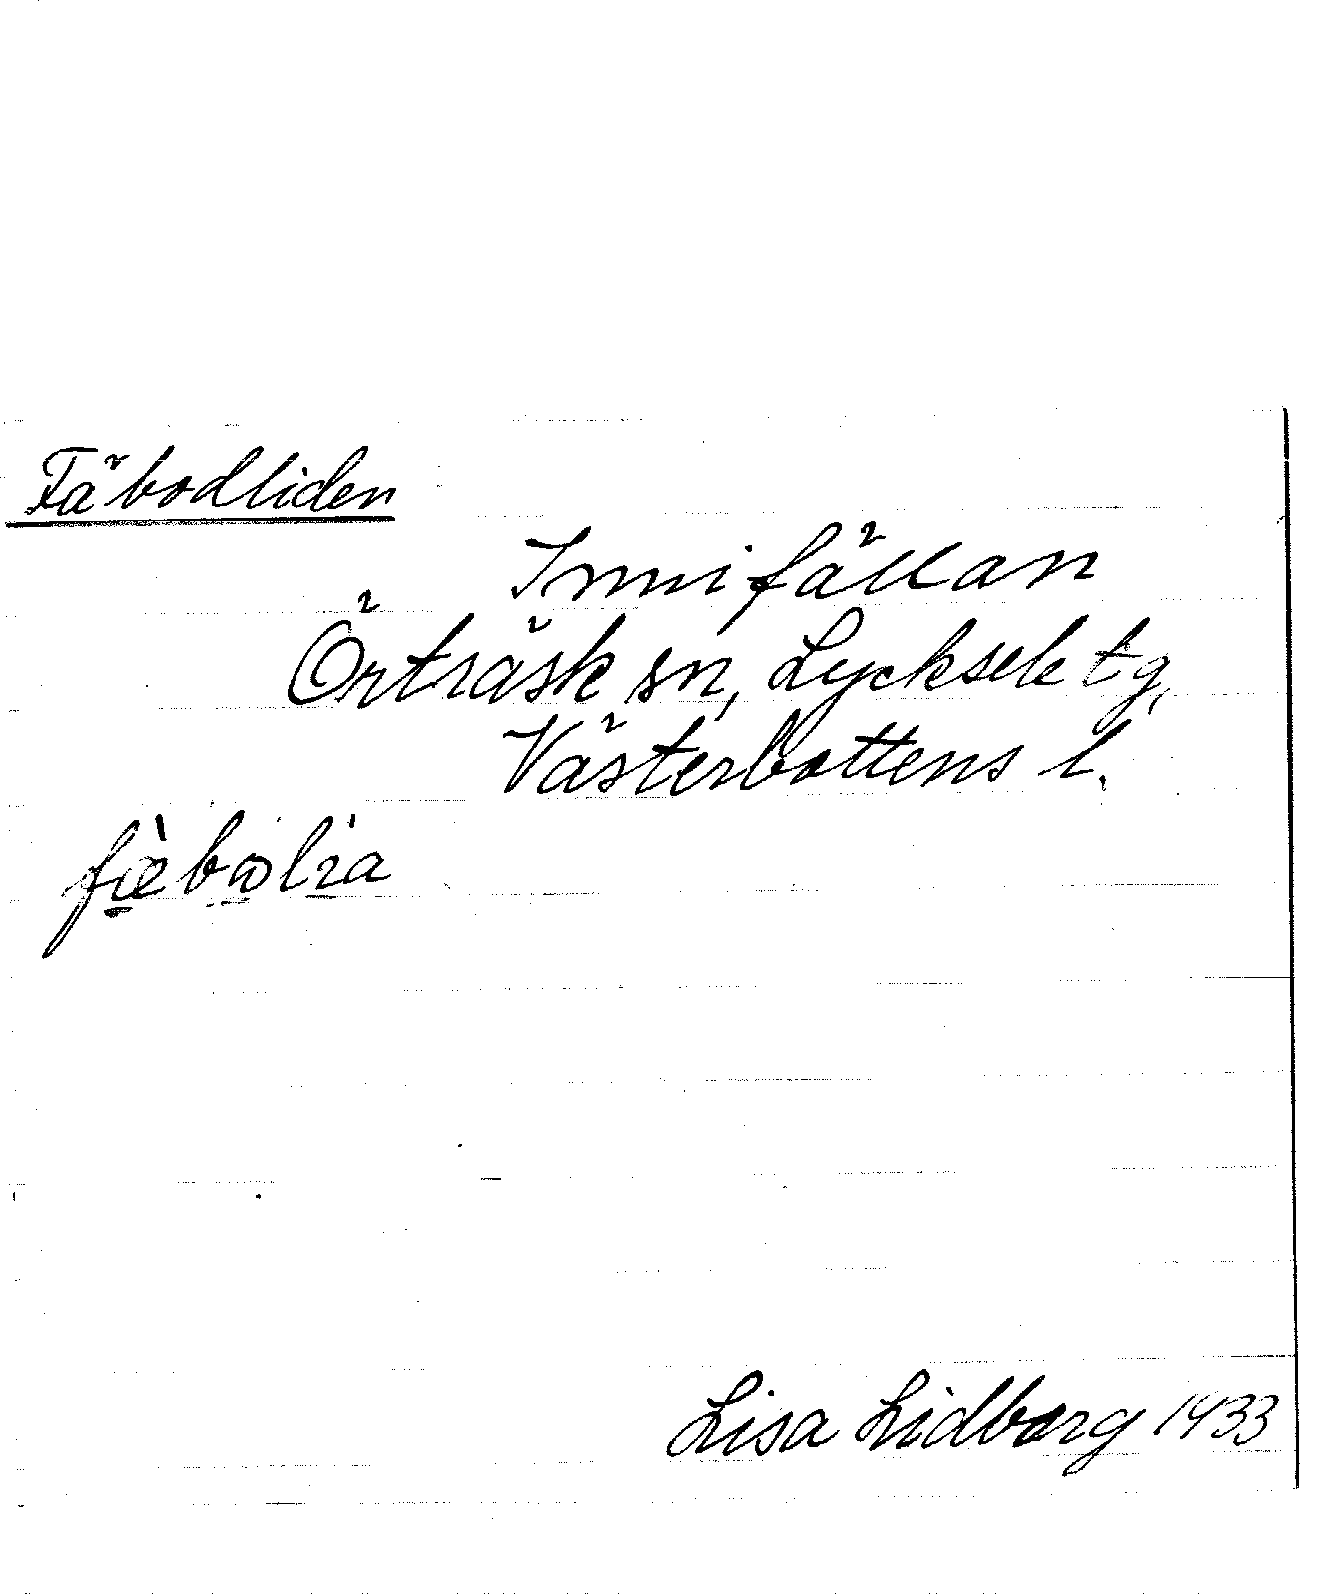 Fäbodliden
Innifällan
Örträsk sn, Lycksele tg,
Västerbottens l.
Lisa Lidborg 1933